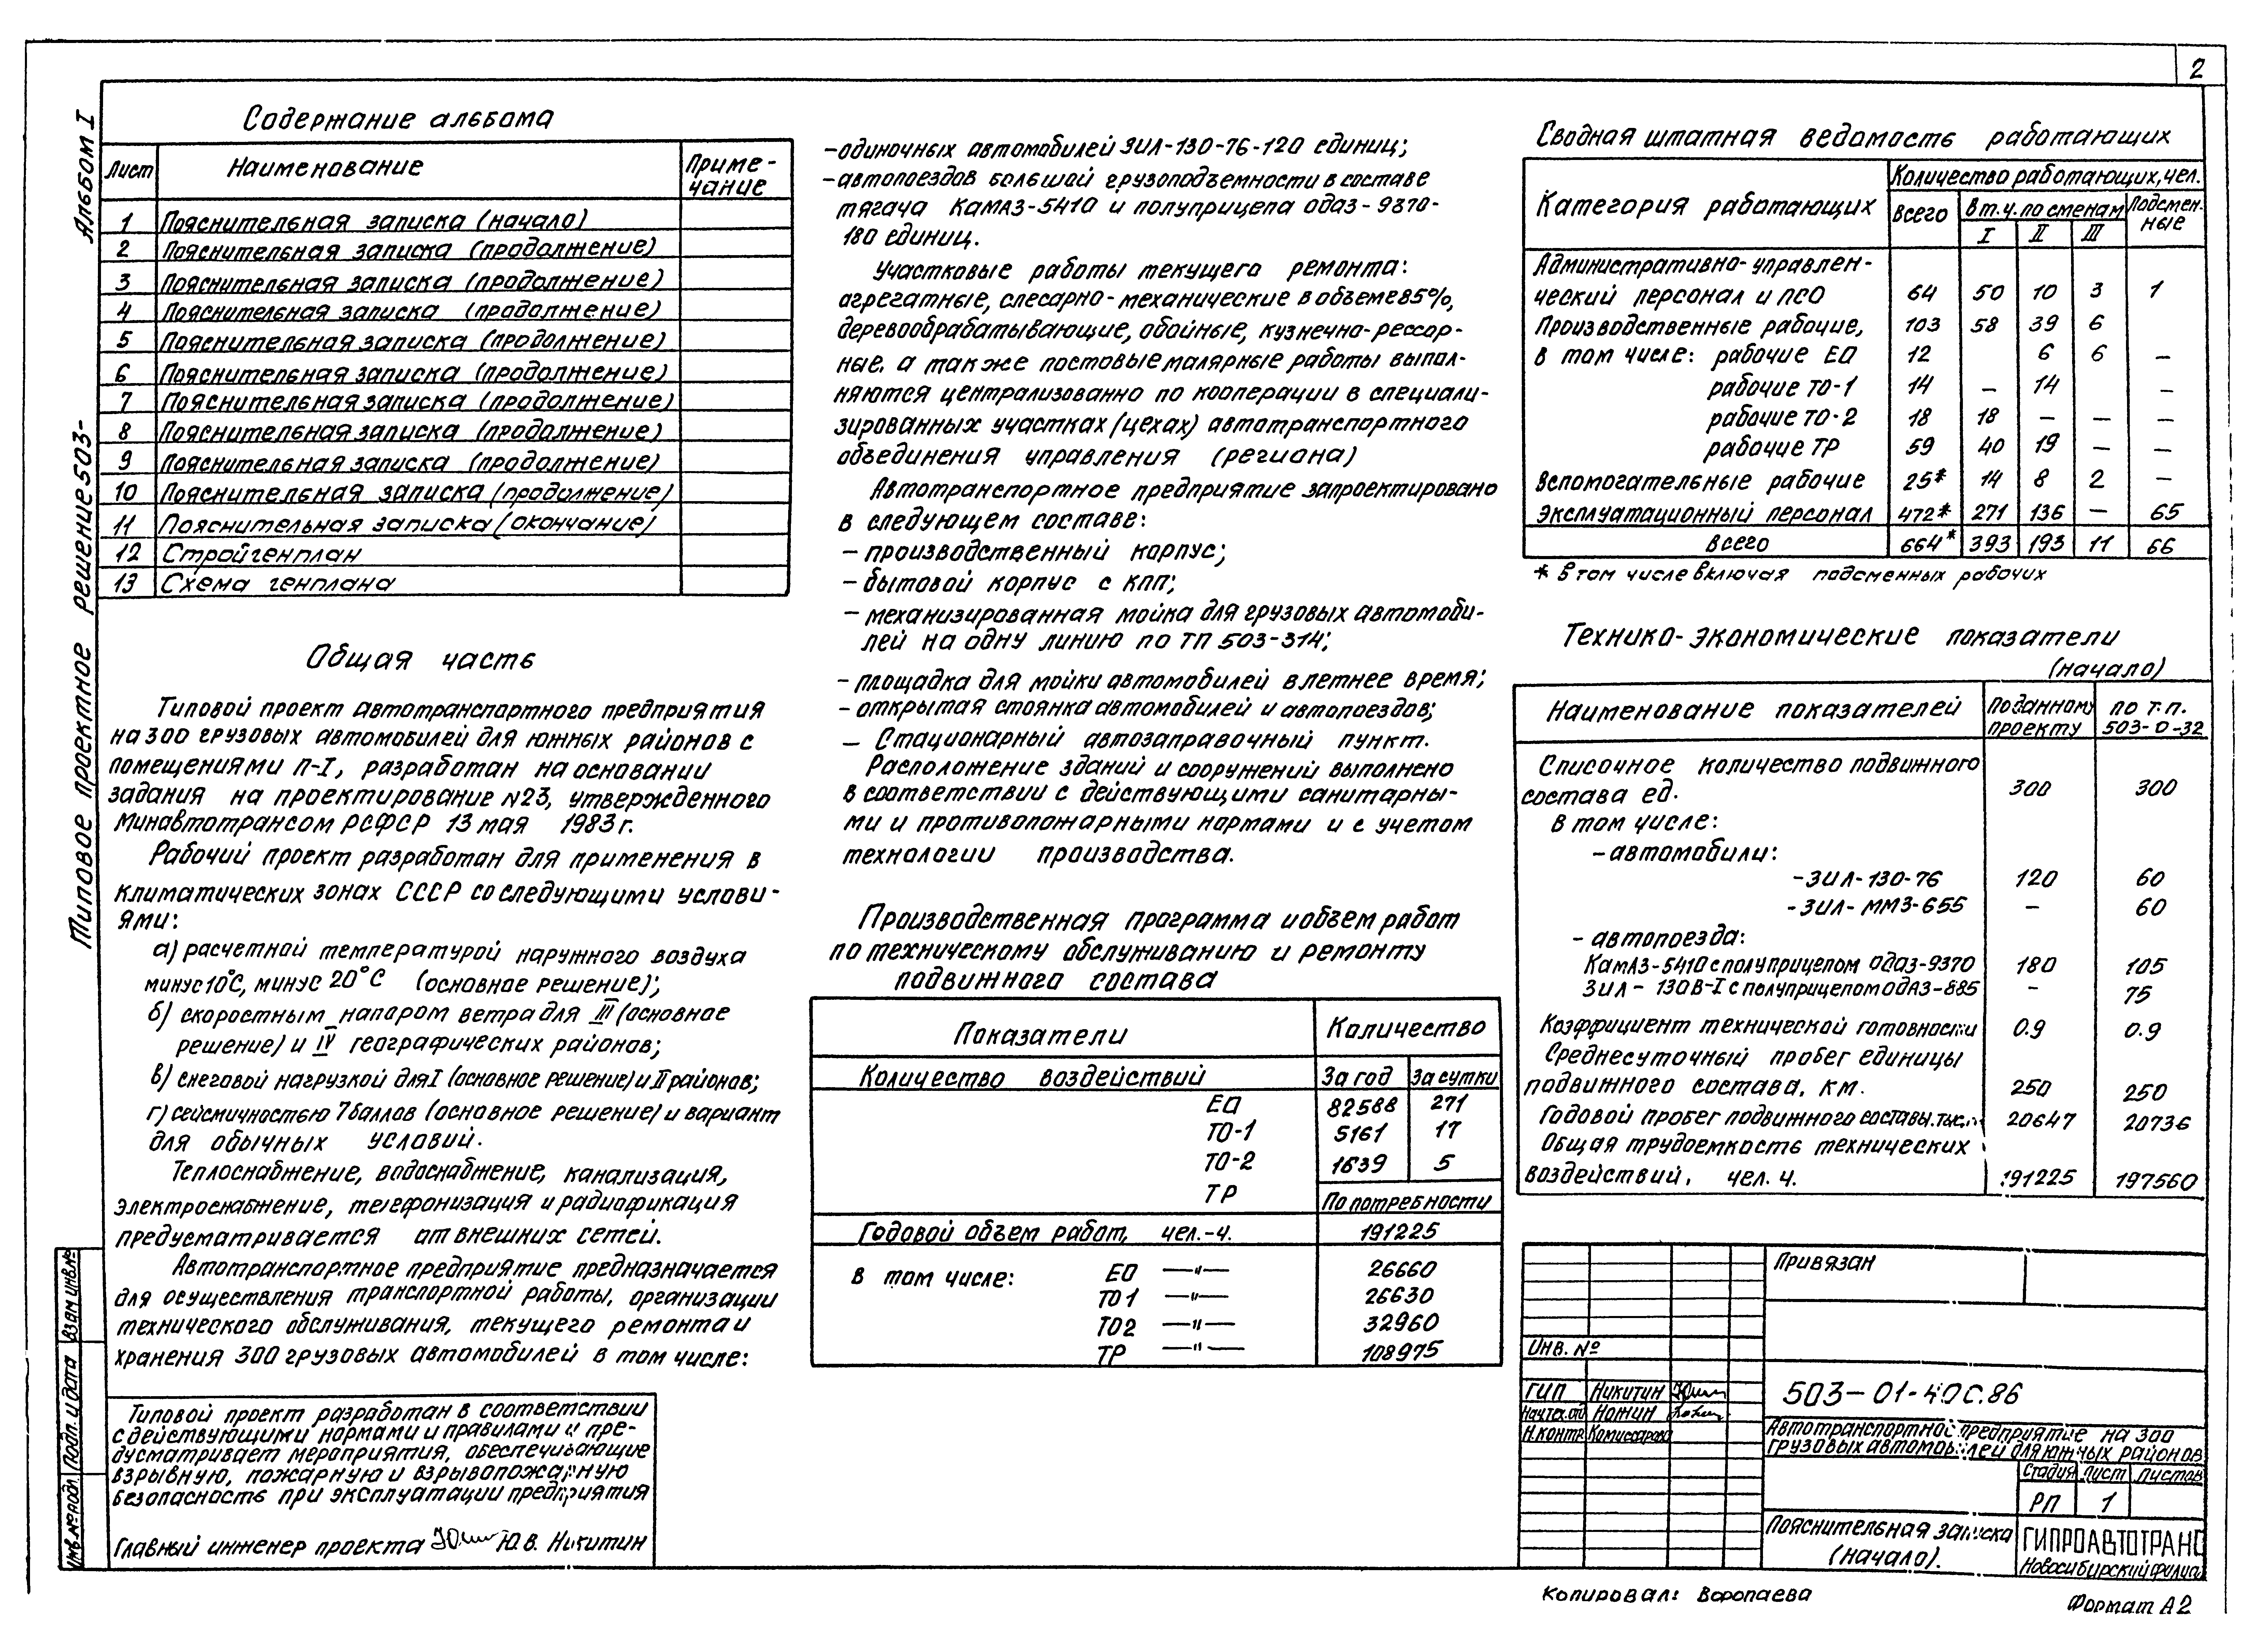 2
Альбом I
Типовое проектное решение 503-
Содержание альбома
Лист Наименование Приме-
чание
1 Пояснительная записка (начало)
2 Пояснительная записка (продолжение)
3 Пояснительная записка (продолжение)
4 Пояснительная записка (продолжение)
5 Пояснительная записка (продолжение)
6 Пояснительная записка (продолжение)
7 Пояснительная записка (продолжение)
8 Пояснительная записка (продолжение)
9 Пояснительная записка (продолжение)
10 Пояснительная записка (продолжение)
11 Пояснительная записка (окончание)
12 Стройгенплан
13 Схема генплана
Общая часть
Типовой проект автотранспортного предприятия
на 300 грузовых автомобилей для южных районов с
помещениями п-I, разработан на основании
задания на проектирование №23, утвержденного
Минавтотрансом РСФСР 13 мая 1983г.
Рабочий проект разработан для применения в
климатических зонах СССР со следующими услови-
ями:
а) расчетной температурой наружного воздуха
минус 10°С, минус 20°С (основное решение);
б) скоростным напором ветра для III (основное
решение) и IV географических районов;
в) снеговой нагрузкой для I (основное решение) и II районов;
г) сейсмичностью 7 баллов (основное решение) и вариант
для обычных условий.
Теплоснабжение, водоснабжение, канализация,
электроснабжение, телефонизация и радиофикация
предусматривается от внешних сетей.
Автотранспортное предприятие предназначается
для осуществления транспортной работы, организации
технического обслуживания, текущего ремонта и
хранения 300 грузовых автомобилей в том числе:
Типовой проект разработан в соответствии
с действующими нормами и правилами и пре-
дусматривает мероприятия, обеспечивающие
взрывную, пожарную и взрывопожарную
безопасность при эксплуатации предприятия
Главный инженер проекта Ю.В. Никитин
Инв.№ подл. Подп. и дата Взам инв.№
-одиночных автомобилей ЗИЛ-130-76-120 единиц;
-автопоездов большой грузоподъемности в составе
тягача КамАЗ-5410 и полуприцепа одаз-9370-
180 единиц.
Участковые работы текущего ремонта:
агрегатные, слесарно-механические в объеме 85%,
деревообрабатывающие, обойные, кузнечно-рессор-
ные, а также постовые малярные работы выпол-
няются централизованно по кооперации в специали-
зированных участках (цехах) автотранспортного
объединения управления (региона)
Автотранспортное предприятие запроектировано
в следующем составе:
- производственный корпус;
- бытовой корпус с КПП;
- механизированная мойка для грузовых автомоби-
лей на одну линию по ТП 503-314;
- площадка для мойки автомобилей в летнее время;
- открытая стоянка автомобилей и автопоездов;
- Стационарный автозаправочный пункт.
Расположение зданий и сооружений выполнено
в соответствии с действующими санитарны-
ми и противопожарными нормами и с учетом
технологии производства.
Производственная программа и объем работ
по техническому обслуживанию и ремонту
подвижного состава
Показатели Количество
Количество воздействий За год За сутки
ЕО 82588 271
ТО-1 5161 17
ТО-2 1639 5
ТР По потребности
Годовой объем работ, чел.-ч. 191225
в том числе: ЕО —"— 26660
ТО1 —"— 26630
ТО2 —"— 32960
ТР —"— 108975
Сводная штатная ведомость работающих
Категория работающих Количество работающих, чел.
Всего В т.ч. по сменам Подсмен-
ные
I II III
Административно-управлен-
ческий персонал и ПСО 64 50 10 3 1
Производственные рабочие, 103 58 39 6
в том числе: рабочие ЕО 12 6 6 —
рабочие ТО-1 14 — 14 —
рабочие ТО-2 18 18 — — —
рабочие ТР 59 40 19 — —
Вспомогательные рабочие 25* 14 8 2 —
Эксплуатационный персонал 472* 271 136 — 65
Всего 664* 393 193 11 66
* В том числе включая подсменных рабочих
Технико-экономические показатели
(начало)
Наименование показателей По данному
проекту по т.п.
503-0-32
Списочное количество подвижного
состава ед. 300 300
в том числе:
-автомобили:
-ЗИЛ-130-76 120 60
-ЗИЛ-ММЗ-655 — 60
- автопоезда:
КамАЗ-5410 с полуприцепом Одаз-9370 180 105
ЗИЛ-130В-I с полуприцепом ОДАЗ-885 — 75
Коэффициент технической готовности 0.9 0.9
Среднесуточный пробег единицы
подвижного состава, км. 250 250
Годовой пробег подвижного составы, тыс. 20647 20736
Общая трудоемкость технических
воздействий, чел.ч. 191225 197560
Привязан
Инв. №
ГИП Никитин
Нач.тех.отд Номин
Н.контр. Комиссарова
503-01-40С.86
Автотранспортное предприятие на 300
грузовых автомобилей для южных районов
Стадия Лист Листов
РП 1
Пояснительная записка
(начало).
ГИПРОАВТОТРАНС
Новосибирский филиал
Копировал: Воропаева
Формат А2